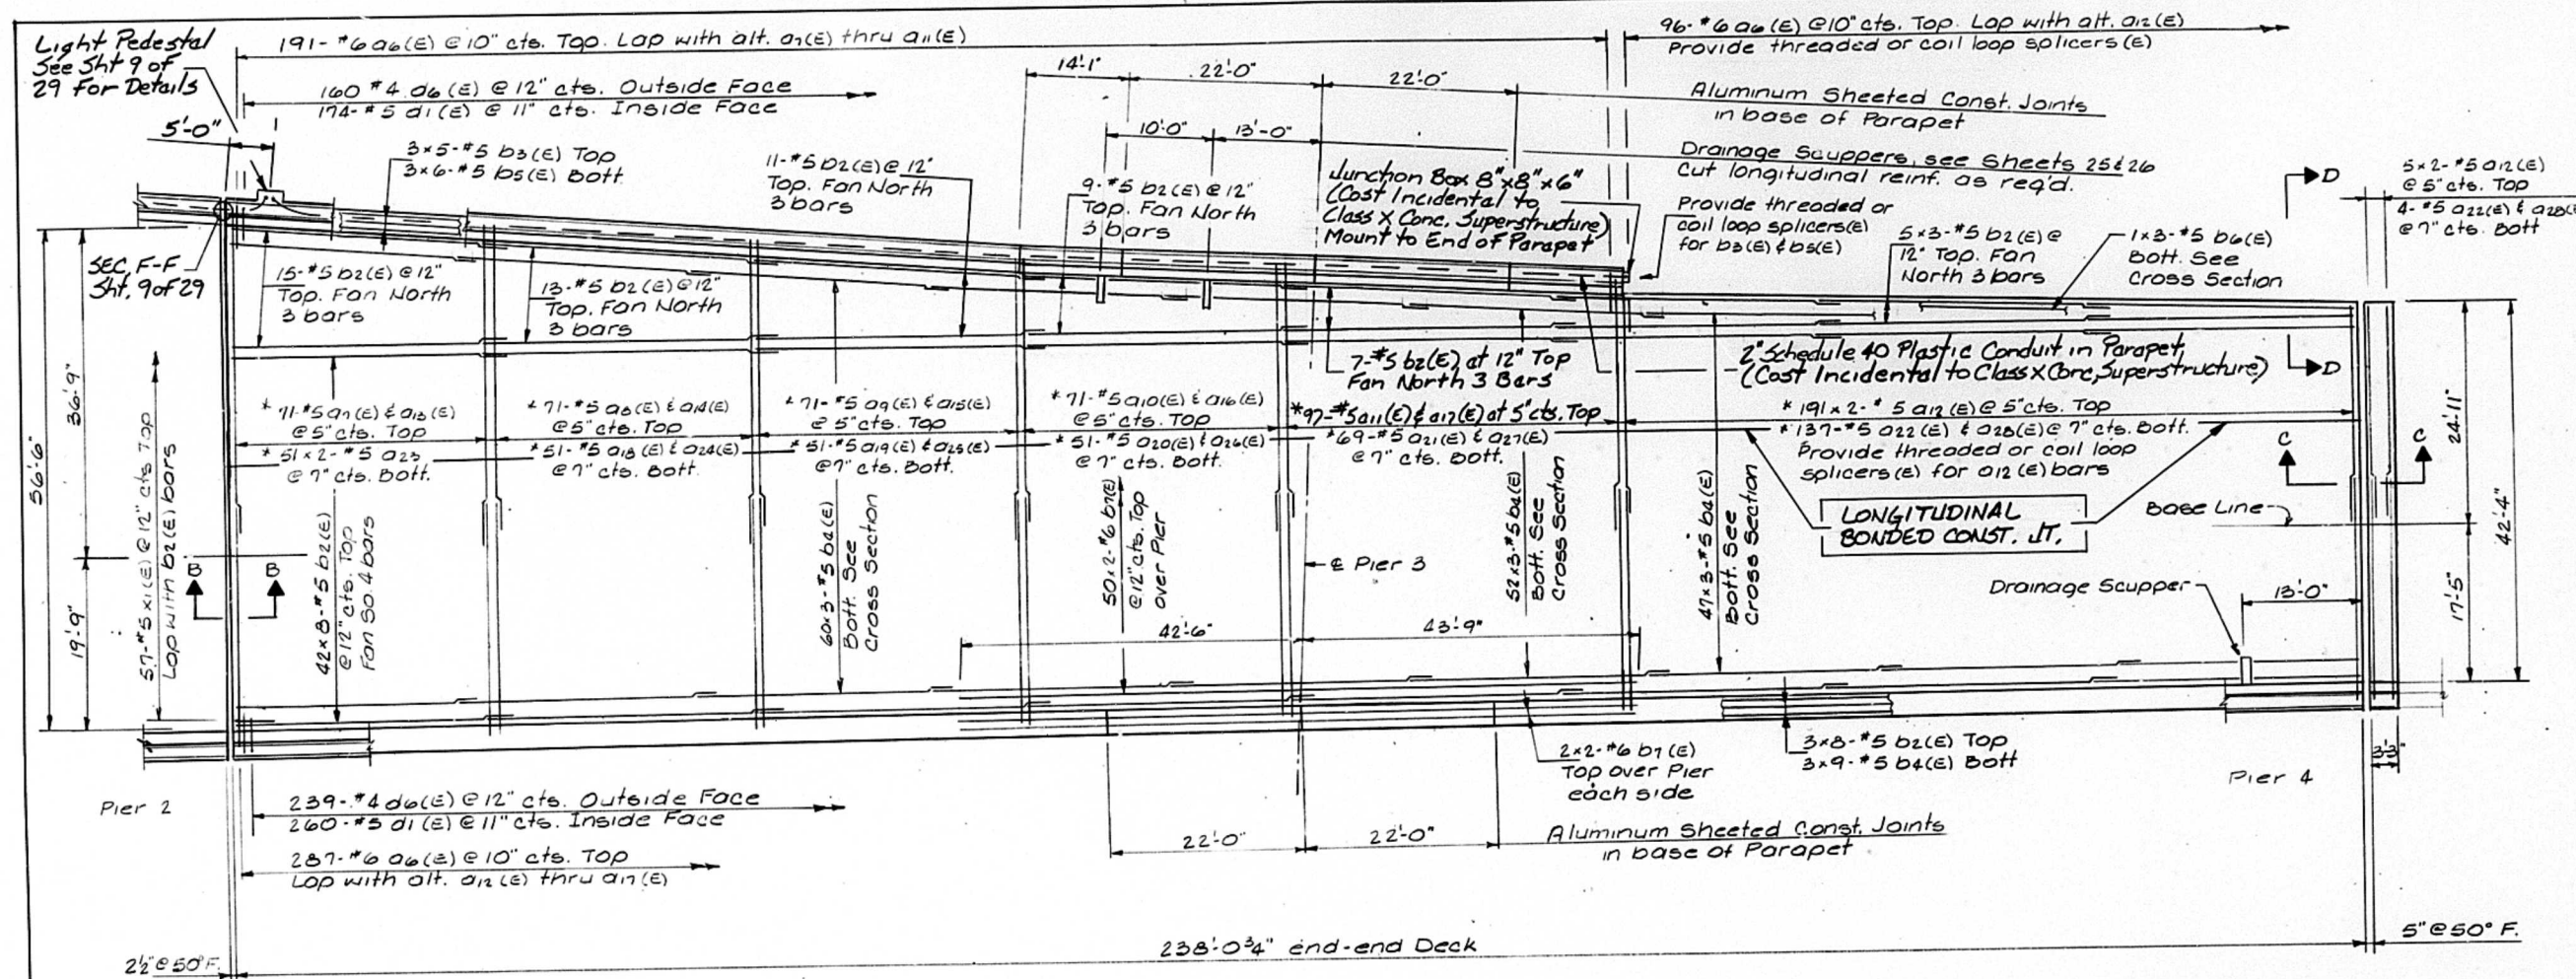 Light Pedestal
See Sht 9 of
29 for Details
191- #6 a6(E) @ 10" cts. Top. Lap with alt. a7(E) thru a11(E)
96- #6 a6(E) @ 10" cts. Top. Lap with alt. a12(E)
Provide threaded or coil loop splicers (E)
160 #4 d6(E) @ 12" cts. Outside Face
174- #5 d1(E) @ 11" cts. Inside Face
14'-1"
22'-0"
22'-0"
Aluminum Sheeted Const. Joints
in base of Parapet
5'-0"
10'-0"
13'-0"
3x5-#5 b3(E) Top
3x6-#5 b5(E) Bott.
11-#5 b2(E) @ 12"
Top. Fan North
3 bars
9-#5 b2(E) @ 12"
Top. Fan North
3 bars
Junction Box 8"x8"x6"
(Cost Incidental to
Class X Conc. Superstructure)
Mount to End of Parapet
Drainage Scuppers, see Sheets 25 & 26
Cut longitudinal reinf. as req'd.
Provide threaded or
coil loop splicers(E)
for b3(E) & b5(E)
5x3-#5 b2(E) @
12" Top. Fan
North 3 bars
1x3-#5 b6(E)
Bott. See
Cross Section
D
5x2-#5 a12(E)
@ 5" cts. Top
4-#5 a22(E) & a28(E)
@ 7" cts. Bott
SEC. F-F
Sht. 9 of 29
15-#5 b2(E) @ 12"
Top. Fan North
3 bars
13-#5 b2(E) @ 12"
Top. Fan North
3 bars
7-#5 b2(E) at 12" Top
Fan North 3 Bars
2" Schedule 40 Plastic Conduit in Parapet
(Cost Incidental to Class X Conc. Superstructure)
D
56'-6"
36'-9"
19'-9"
57-#5 x1(E) @ 12" cts. Top
Lap with b2(E) bars
* 71-#5 a7(E) & a13(E)
@ 5" cts. Top
* 51x2-#5 a23
@ 7" cts. Bott.
* 71-#5 a8(E) & a14(E)
@ 5" cts. Top
* 51-#5 a18(E) & a24(E)
@ 7" cts. Bott.
* 71-#5 a9(E) & a15(E)
@ 5" cts. Top
* 51-#5 a19(E) & a25(E)
@ 7" cts. Bott.
* 71-#5 a10(E) & a16(E)
@ 5" cts. Top
* 51-#5 a20(E) & a26(E)
@ 7" cts. Bott.
* 97-#5 a11(E) & a17(E) at 5" cts. Top
* 69-#5 a21(E) & a27(E)
@ 7" cts. Bott.
* 191x2-#5 a12(E) @ 5" cts. Top
* 137-#5 a22(E) & a28(E) @ 7" cts. Bott.
Provide threaded or coil loop
splicers(E) for a12(E) bars
C
C
24'-11"
42'-4"
17'-5"
42x8-#5 b2(E)
@ 12" cts. Top
Fan So. 4 bars
60x3-#5 b4(E)
Bott. See
Cross Section
50x2-#6 b7(E)
@ 12" cts. Top
over Pier
52x3-#5 b4(E)
Bott. See
Cross Section
47x3-#5 b4(E)
Bott. See
Cross Section
LONGITUDINAL
BONDED CONST. JT.
Base Line
B
B
℄ Pier 3
Drainage Scupper
13'-0"
42'-6"
43'-9"
2x2-#6 b7(E)
Top over Pier
each side
3x8-#5 b2(E) Top
3x9-#5 b4(E) Bott
3'3"
Pier 2
Pier 4
239-#4 d6(E) @ 12" cts. Outside Face
260-#5 d1(E) @ 11" cts. Inside Face
22'-0"
22'-0"
Aluminum Sheeted Const. Joints
in base of Parapet
287-#6 a6(E) @ 10" cts. Top
Lap with alt. a12(E) thru a17(E)
238'-0¾" end-end Deck
2½" @ 50° F.
5" @ 50° F.